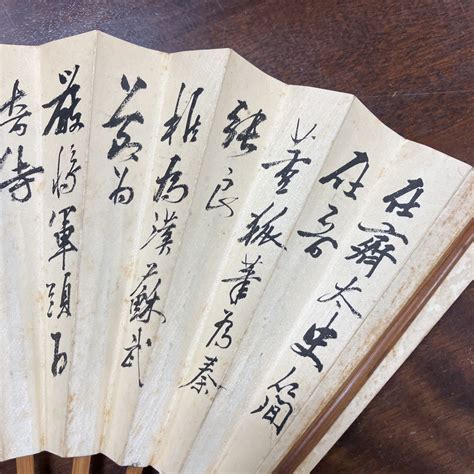 在齊太史簡
在晉
董狐筆為秦
張良
椎為漢蘇武
節為
嚴將軍頭為